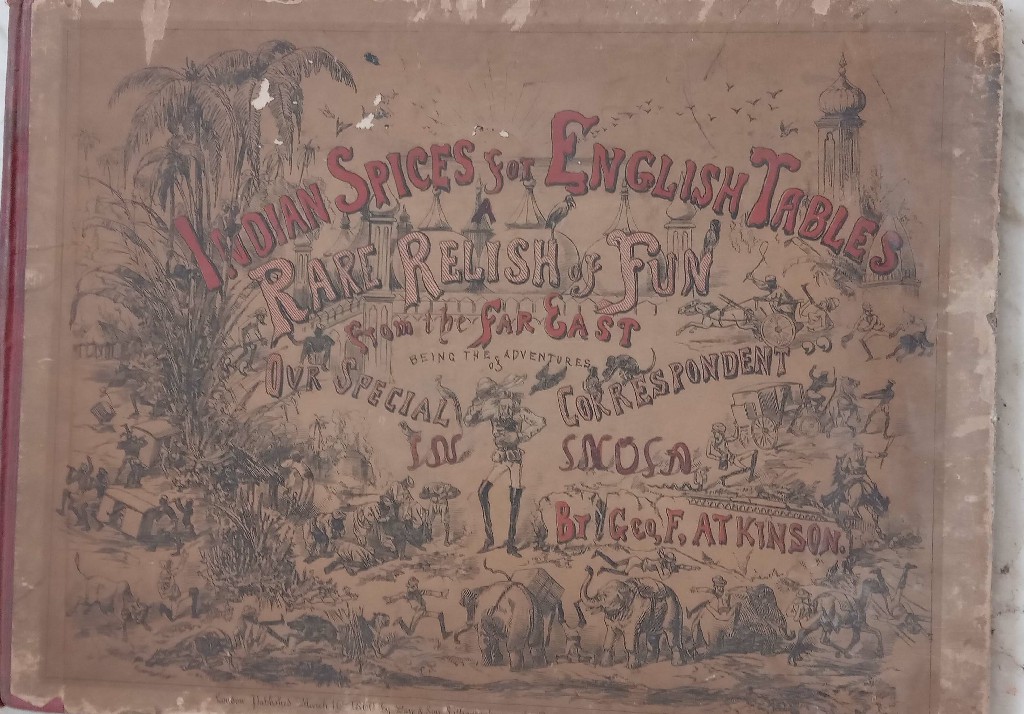 INDIAN SPICES for ENGLISH TABLES
RARE RELISH of FUN
from the FAR EAST
BEING THE ADVENTURES
OF
OUR SPECIAL CORRESPONDENT
IN
BY GEO, F, ATKINSON.
London Published March 1860 by Day & Son